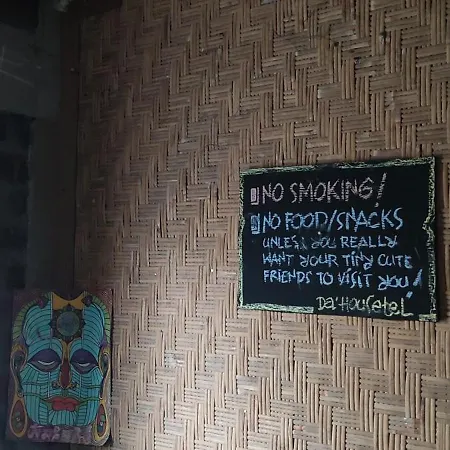 NO SMOKING!
NO FOOD/SNACKS
UNLESS YOU REALLY
WANT YOUR TINY CUTE
FRIENDS TO VISIT YOU!
Da'Housetel